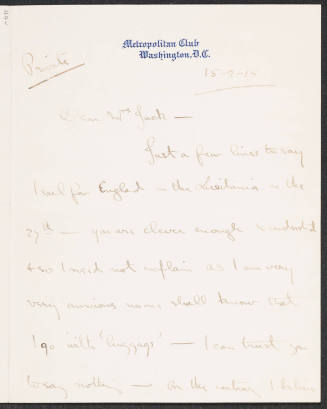 Metropolitan Club
Washington, D.C.
Private
15-2-15
Dear Mrs Jack —
Just a few lines to say
I sail for England in the Lusitania on the
27th — you are clever enough to understand
& so I need not explain as I am very
very anxious none shall know that
I go with 'luggage' — I can trust you
to say nothing — on the contrary I believe